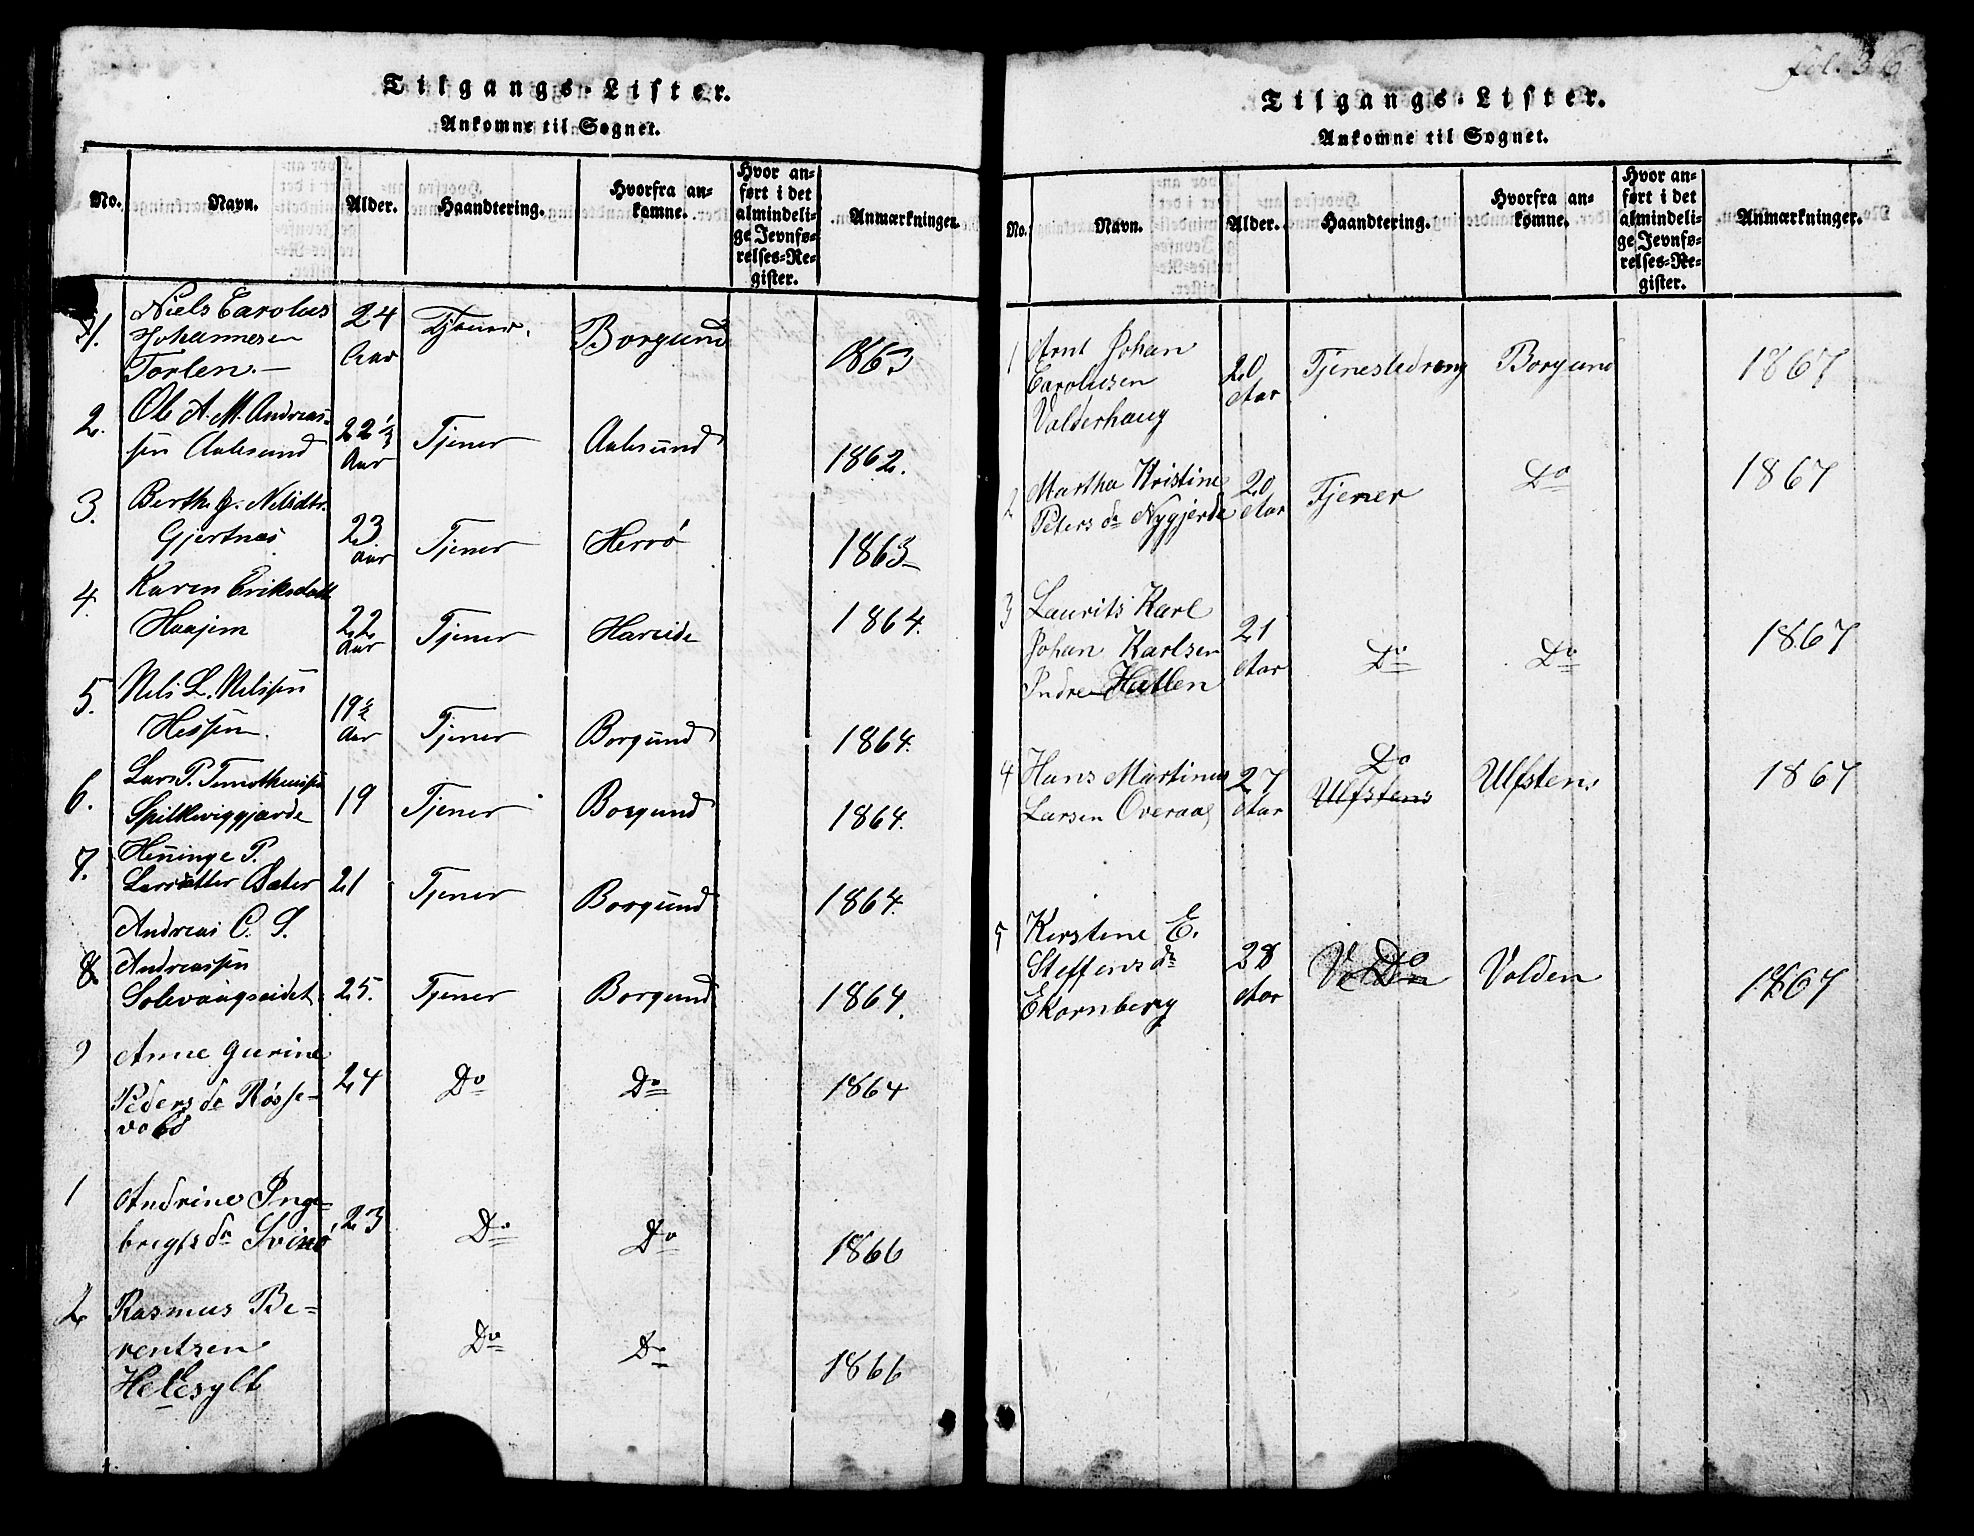 Tilgangs-Lister.
Ankomne til Sognet.
No. Navn. Alder. Haandtering. Hvorfra ankomne. Hvor anført i det almindelige Jevnførelses-Register. Anmærkninger.
1. Niels Carolus
Johannesen
Torlen.— 24 Aar Tjener. Borgund 1863
2. Ole A. M. Andreas-
sen Aalesund 22½ Aar Tjener Aalesund 1862.
3. Berthe J. Nelsdtr.
Gjertnæs 23 Aar Tjener Herrö 1863
4. Karen Eriksdatt
Haajem 22 Aar Tjener Hareide 1864.
5. Nels L. Nelssen
Hessen. 19½ Aar Tjener Borgund 1864.
6. Lars P. Timotheussen
Spilkeviggjærde 19 Tjener Borgund 1864.
7. Henninge P.
Larsdatter Sæter 21 Tjener Borgund 1864.
8. Andreas C. S.
Andreassen
Solevaagseidet 25. Tjener Borgund 1864.
9 Anne Gurine
Peders dr Røsse-
vold 24 Do Do 1864
1 Andrine Inge-
brigts dr Svinö 23 Do Do 1866
2 Rasmus Be-
rentsen
Helesylt Do Do 1866
fol. 36.
Tilgangs-Lister.
Ankomne til Sognet.
No. Navn. Alder. Haandtering. Hvorfra ankomne. Hvor anført i det almindelige Jevnførelses-Register. Anmærkninger.
1 Arnt Johan
Carolusen
Valderhaug 20 Aar Tjenestedreng Borgund 1867
2 Martha Kristine
Peters dr Nygjerde 20 Aar Tjener Do 1867
3 Laurits Karl
Johan Karlsen
Indre Hatlen 21 Aar Do Do 1867
4 Hans Martinus
Larsen Overaae 27 Aar Do Ulfstens Ulfsten. 1867
5 Kerstine E.
Steffens dr
Ekornberg 28 Aar Volden Do Volden 1867